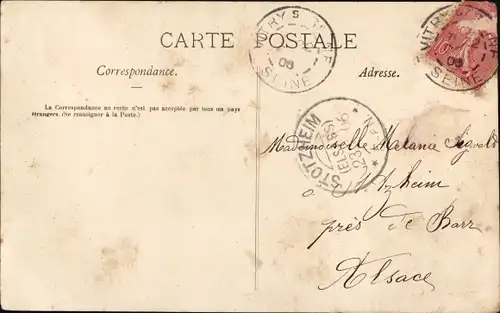 CARTE POSTALE
Correspondance.
Adresse.
La Correspondance au recto n'est pas acceptée par tous les pays
étrangers. (Se renseigner à la Poste.)
VITRY S SEINE
08
SEINE
VITRY
08
SEINE
STOTZHEIM
(ELS
23
Mademoiselle Melanie
à Stotzheim
près de Barr
Alsace